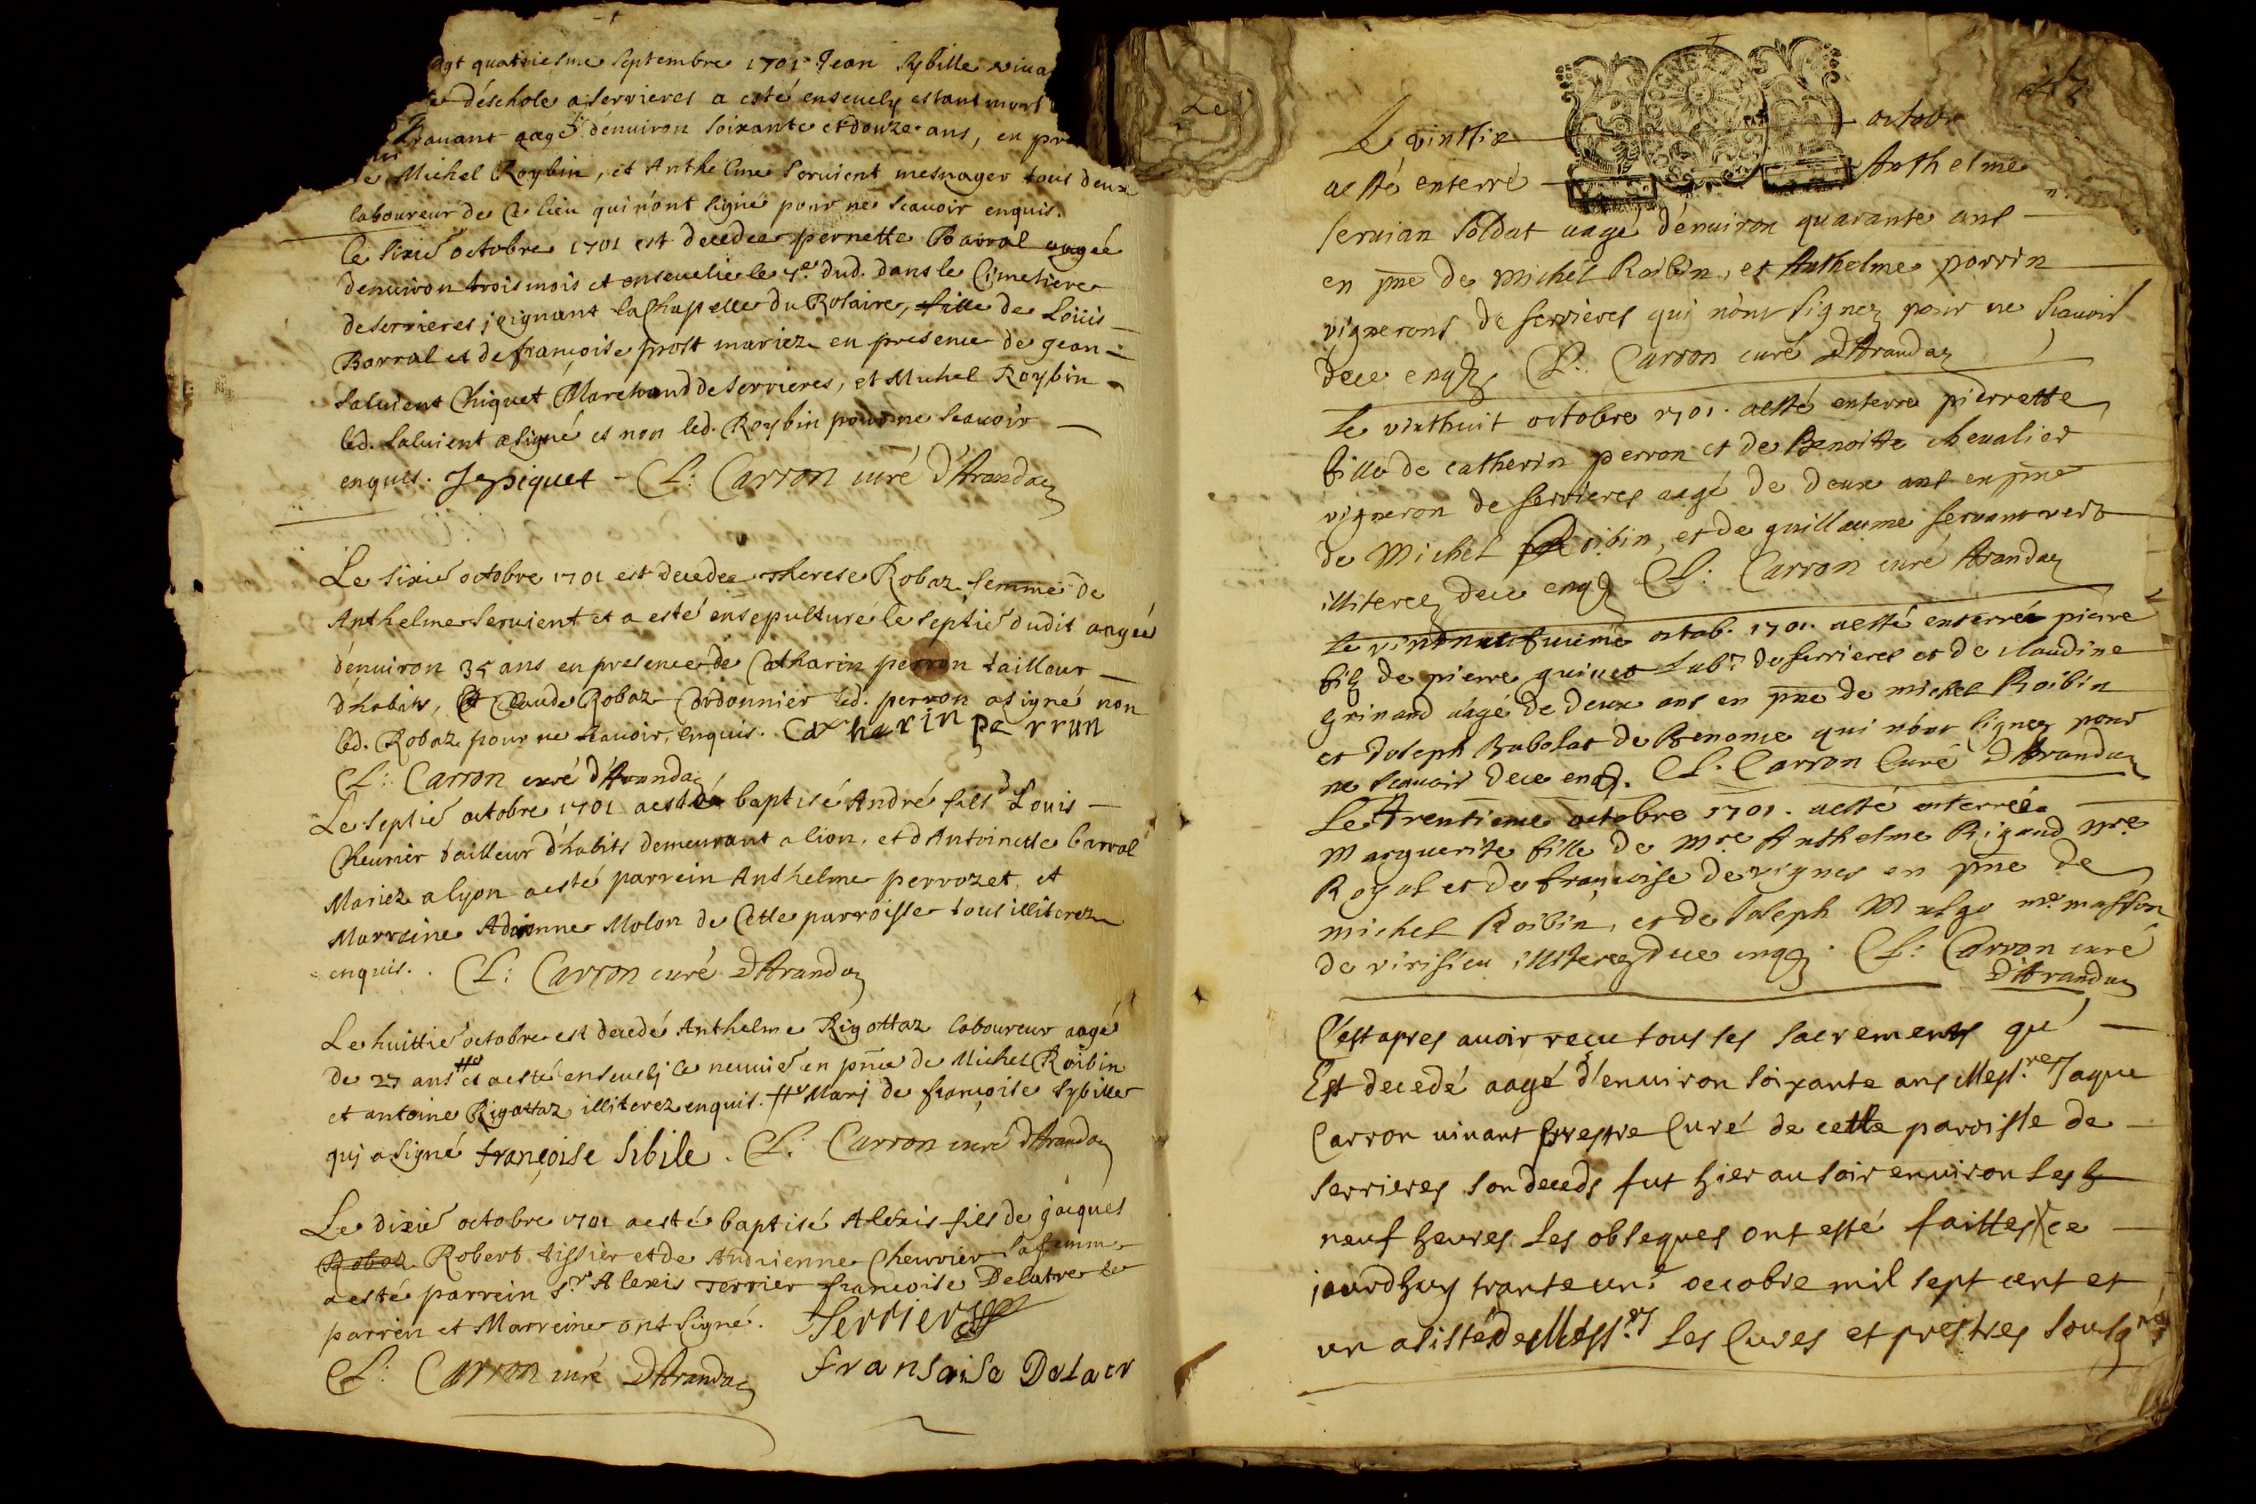 quatriesme septembre 1701 Jean Sybille
déschole a Serrieres a esté enseuely estant mort
auant aagé d'enuiron soixante et douze ans, en
Michel Roybin, et Anthelme Seruient mesnager tous deux
laboureur de ce lieu qui n'ont signé pour ne scauoir enquis.
Le sixié octobre 1701 est decedée pernette Barral aagée
denuiron trois mois et enseuelie le 7e. dud. dans le Cimetiere
de Serrieres joignant la Chapelle du Rosaire, fille de Loüis
Barral et de françoise prost mariez en presence de jean
Saluient Chiquet Marchand de Serrieres, et Michel Roybin
led. Saluient a signé et non led. Roybin pour ne scauoir
enquis. Jepiquet - C: Carron curé d'Arandaz
Le sixié octobre 1701 est decedee therese Robaz femme de
Anthelme Seruient et a esté ensepulturé le septié dudit aagée
d'enuiron 35 ans en presence de Catharin perron tailleur
d'habits, et Claude Robaz Cordonnier led. perron a signé non
led. Robaz pour ne scauoir, enquis. Catharin perrun
C: Carron curé d'Arandaz
Le septié octobre 1701 a esté baptisé André fils d Louis
Cheurier tailleur d'habits demeurant a lion, et d'Antoinette barral
Mariez a lyon a esté parrein Anthelme perrozet, et
Marreine Adrianne Molon de Cette parroisse tous illiterez
enquis. C: Carron curé d'Arandaz
Le huittié octobre est decedé Anthelme Rigottaz laboureur aagé
de 27 ans et a esté enseuelj le neuuié en pnce de Michel Roibin
et antoine Rigottaz illiterez enquis. Mari de françoise Sybille
qui a signé françoise sibile. C: Carron curé d'Arandaz
Le dixié octobre 1701 a esté baptisé Alexis fils de jacques
Robaz Robert tissier et de Andrienne Cheurier sa femme
a esté parrein Sr. Alexis Terrier françoise Delatre
parrein et Marreine ont signé. Terrier
C: Carron curé d'Arandaz fransoise Delatr
Le vintsix octobr
a esté enterré Anthelme
seruian soldat aagé d'enuiron quarante ans
en pne de michel Roibin, et Anthelme perrin
vignerons de serrieres qui n'ont signez pour ne scauoir
dece enqz C: Carron curé d'Arandaz
Le vinthuit octobre 1701. a esté enterré pierrette
fille de catherin perron et de Benoitte cheualier
vigneron de serrieres aagé de deux ans en pne
de Michel Roibin, et de guillaume seruant
illiterez dece enqz C: Carron curé Arandaz
Le vintneufuieme octob. 1701. a esté enterré pierre
filz de pierre quinet Labr. de serrieres et de claudine
grinand aagé de deux ans en pne de michel Roibin
et Joseph Babolat de Benonce qui n'ont signez pour
ne scauoir dece enqz. C: Carron Curé d'Arandaz
Le trentieme octobre 1701. a esté enterrée
Marguerite fille de Mre Anthelme Rigaud nre
Royal et de françoise devignes en pne de
michel Roibin, et de Joseph me masson
de virisieu illiterez dece enqz. C: Carron curé
d'Arandaz
C'est apres auoir reçu tous ses sacrements qu'
Est decedé aagé d'enuiron soixante ans Messre Jaque
Carron viuant prestre Curé de cette paroisse de
serrieres son deceds fut hier au soir enuiron les
neuf heures Les obseques ont esté faittes ce
jourdhuy trante un octobre mil sept cent et
un asisté de Messrs Les Cures et prestres sousgnes